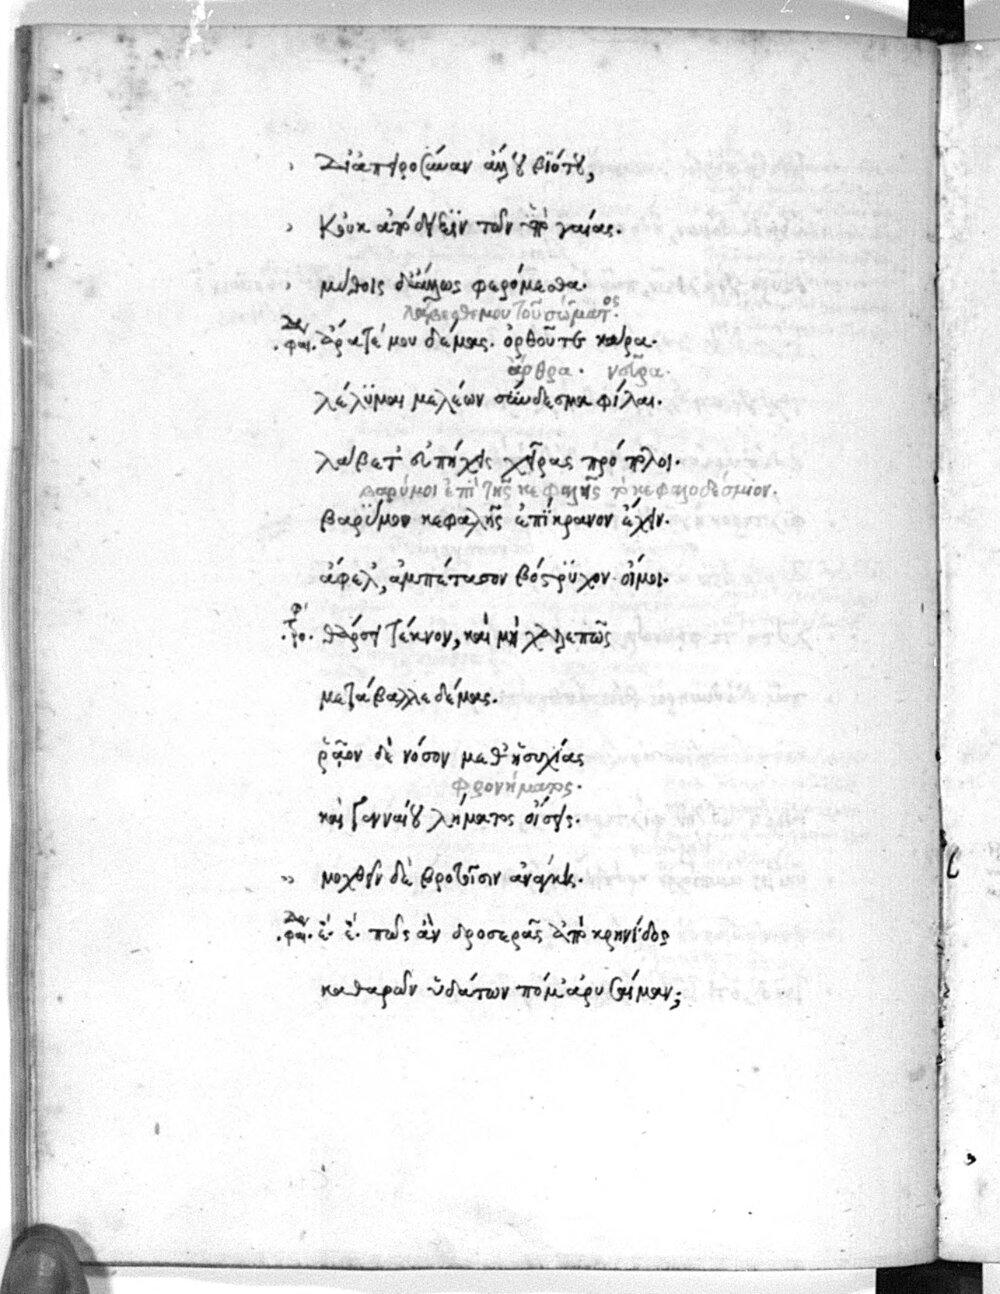 Δι' ἀπειροσύναν ἄλλου βιότου,
Κοὐκ ἀπόδειξιν τῶν ὑπὸ γαίας.
μύθοις δ' ἄλλως φερόμεσθα.
λάβεσθέ μου τοῦ σώματος.
Φαι. ἄρατέ μου δέμας. ὀρθοῦτε κάρα.
ἄρθρα. νεῦρα.
λέλυμαι μελέων σύνδεσμα φίλαι.
λάβετ' εὐπήχεις χεῖρας πρόπολοι.
βαρύ μοι ἐπὶ τῆς κεφαλῆς τὸ κεφαλοδέσμιον.
βαρύ μου κεφαλῆς ἐπίκρανον ἔχειν.
ἄφελ', ἀμπέτασον βόστρυχον οἴμοι.
Τρο. θάρσει τέκνον, καὶ μὴ χαλεπῶς
μετάβαλλε δέμας.
ῥᾷον δὲ νόσον μεθ' ἡσυχίας
φρονήματος.
καὶ γενναίου λήματος οἴσεις.
μοχθεῖν δὲ βροτοῖσιν ἀνάγκη.
Φαι. ἐ. ἐ. πῶς ἂν δροσερᾶς ἀπὸ κρηνίδος
καθαρῶν ὑδάτων πόμ' ἀρυσαίμαν;